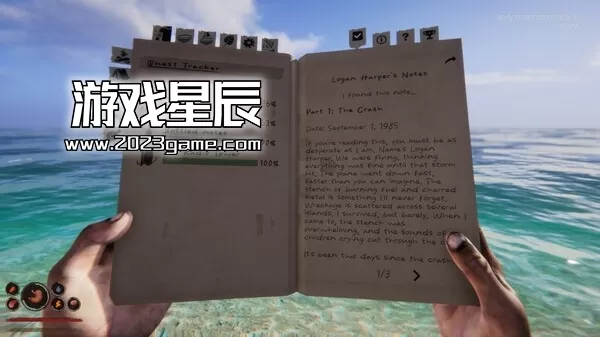 Quest Tracker
游戏星辰
www.2023game.com
100%
Logan Harper's Notes
I found two note...
Part 1: The Crash
Date: September 1, 1985
If you're reading this, you must be as
desperate as I am. Name's Logan
Harper. We were flying, thinking
everything was fine until that storm
hit. The plane went down fast,
faster than you can imagine. The
stench of burning fuel and charred
metal is something I'll never forget.
Wreckage is scattered across several
islands. I survived, but barely. When I
came to, the stench was
overwhelming, and the sounds of
children crying cut through the
It's been two days since the crash
1/3